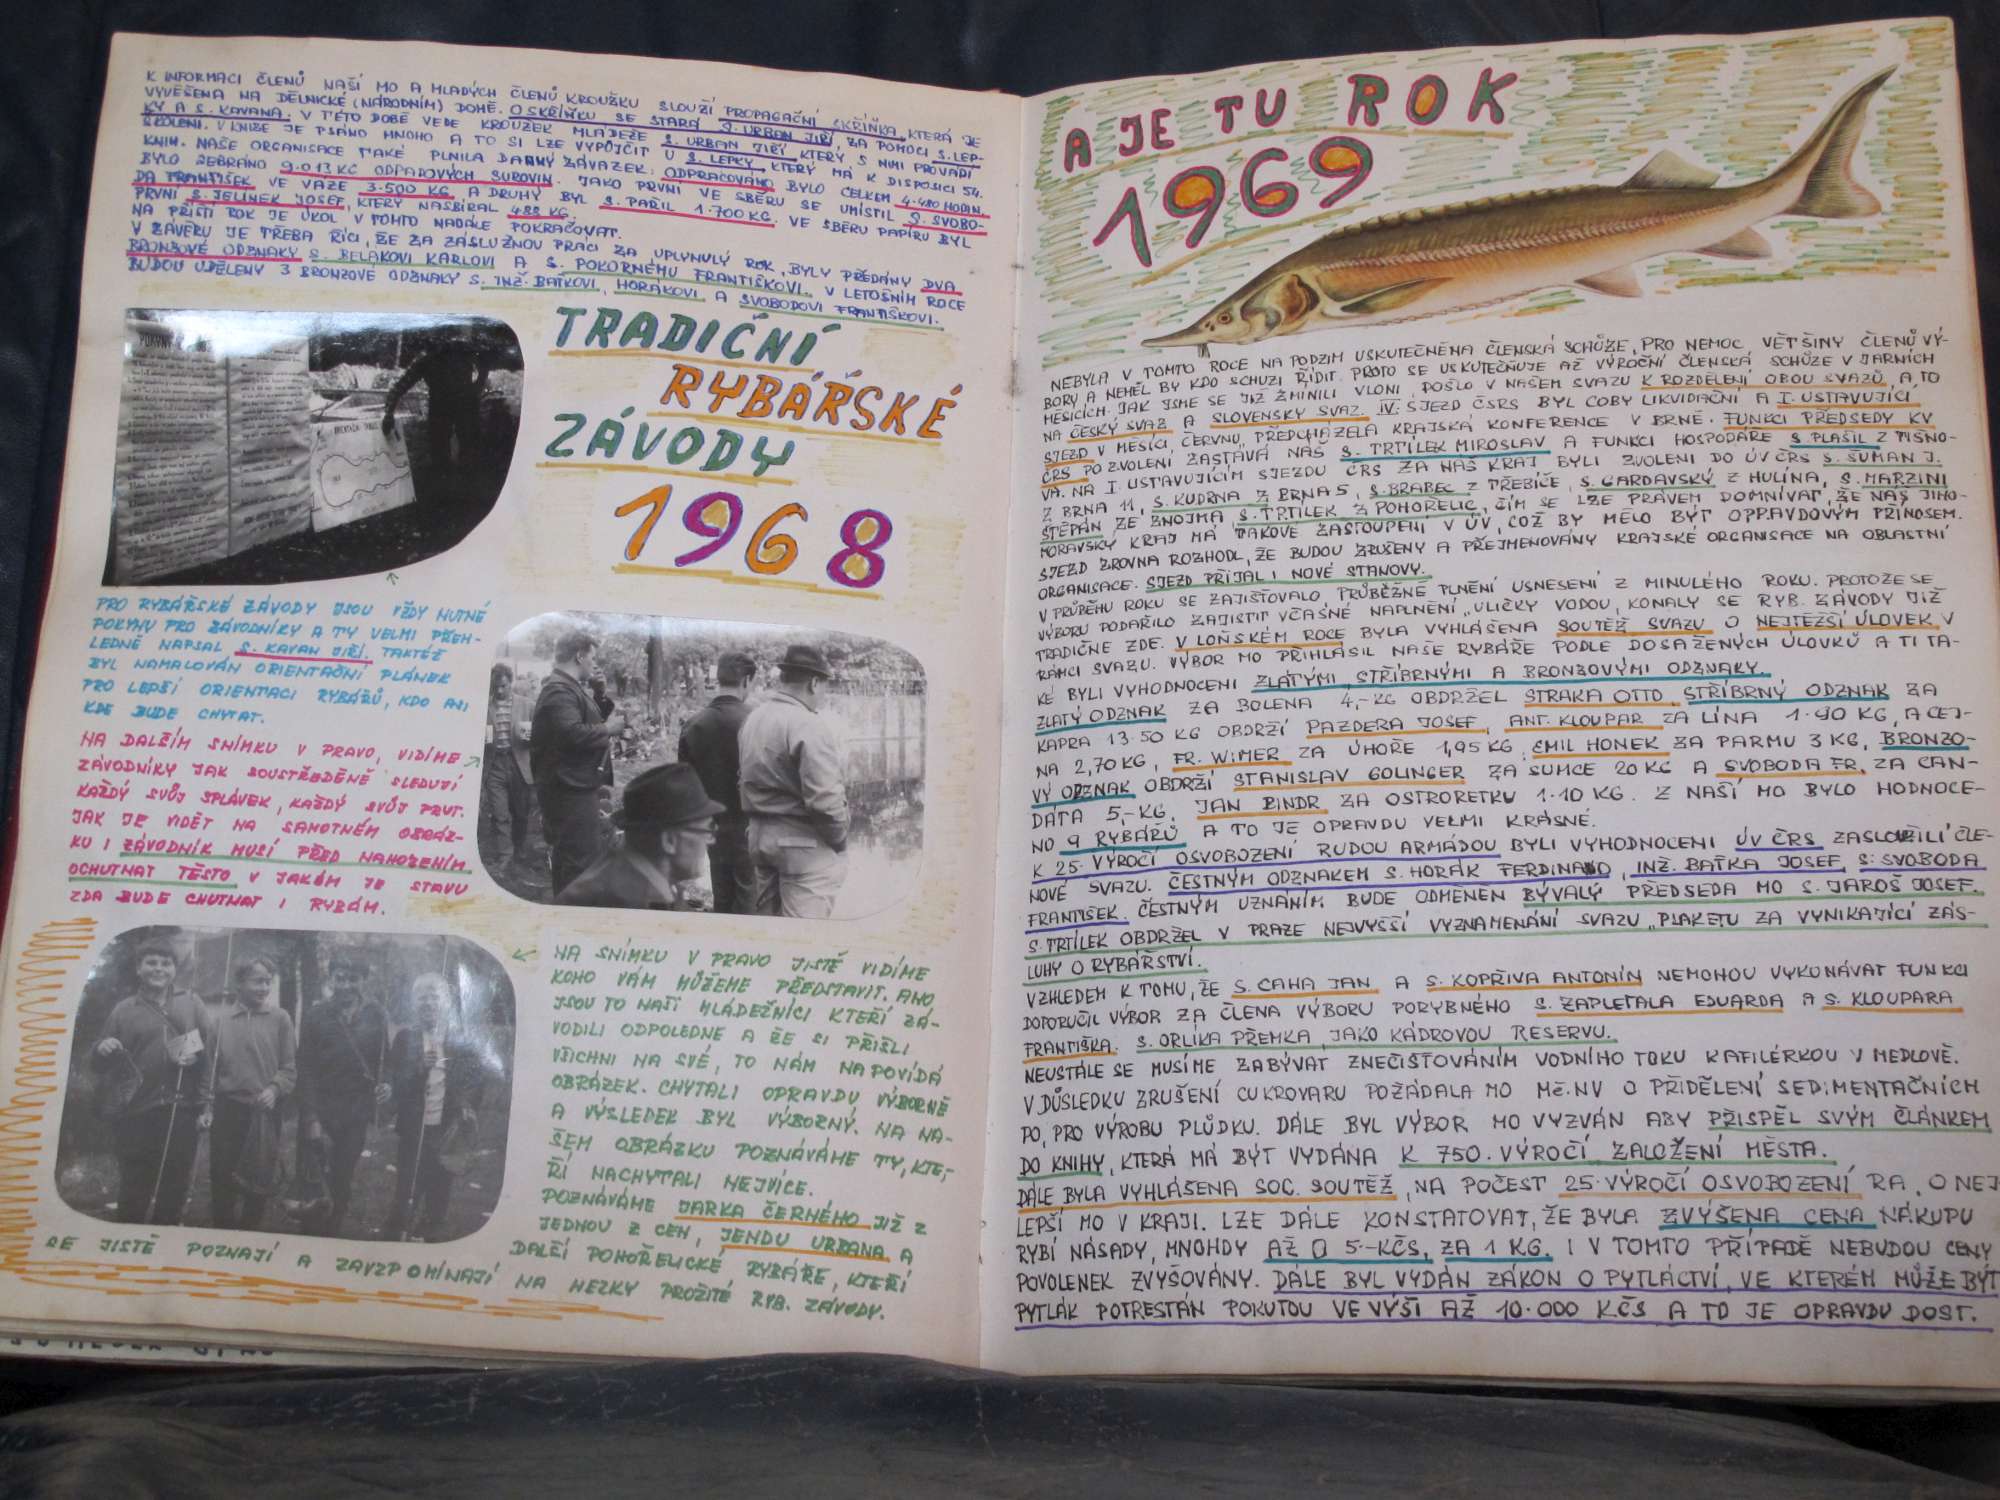 K INFORMACI ČLENŮ NAŠÍ MO A MLADÝCH ČLENŮ KROUŽKU SLOUŽÍ PROPAGAČNÍ SKŘÍŇKA, KTERÁ JE
VYVĚŠENA NA DĚLNICKÉ (NÁRODNÍM) DOMĚ. O SKŘÍŇKU SE STARÁ S. URBAN JIŘÍ, ZA POMOCI S. LEP-
KY A S. KAVANA. V TÉTO DOBĚ VEDE KROUŽEK MLÁDEŽE S. URBAN JIŘÍ, KTERÝ S NIMI PROVÁDÍ
ŠKOLENÍ. V KNIZE JE PSÁNO MNOHO A TO SI LZE VYPŮJČIT U S. LEPKY, KTERÝ MÁ K DISPOSICI 54.
KNIH. NAŠE ORGANISACE TAKÉ PLNILA DANNÝ ZÁVAZEK. ODPRACOVÁNO BYLO CELKEM 4.480 HODIN.
BYLO SEBRÁNO 9.013 KG ODPADOVÝCH SUROVIN. JAKO PRVNÍ VE SBĚRU SE UMÍSTIL S. SVOBO-
DA FRANTIŠEK VE VÁZE 3.500 KG, A DRUHÝ BYL S. PAŘIL 1.700 KG. VE SBĚRU PAPÍRU BYL
PRVNÍ S. JELÍNEK JOSEF, KTERÝ NASBÍRAL 488 KG.
NA PŘÍŠTÍ ROK JE ÚKOL V TOMTO NADÁLE POKRAČOVAT.
V ZÁVĚRU JE TŘEBA ŘÍCI, ŽE ZA ZÁSLUŽNOU PRÁCI ZA UPLYNULÝ ROK, BYLY PŘEDÁNY DVA
BRONZOVÉ ODZNAKY S. BELÁKOVI KARLOVI A S. POKORNÉMU FRANTIŠKOVI. V LETOŠNÍM ROCE
BUDOU UDĚLENY 3 BRONZOVÉ ODZNAKY S. INŽ. BAŤKOVI, HORÁKOVI A SVOBODOVI FRANTIŠKOVI.
TRADIČNÍ
RYBÁŘSKÉ
ZÁVODY
1968
PRO RYBÁŘSKÉ ZÁVODY JSOU VŽDY NUTNÉ
POKYNY PRO ZÁVODNÍKY A TY VELMI PŘEH-
LEDNĚ NAPSAL S. KAVAN JIŘÍ. TAKTÉŽ
BYL NAMALOVÁN ORIENTAČNÍ PLÁNEK
PRO LEPŠÍ ORIENTACI RYBÁŘŮ, KDO ANI
KDE BUDE CHYTAT.
NA DALŠÍM SNÍMKU V PRAVO, VIDÍME
ZÁVODNÍKY JAK SOUSTŘEDĚNĚ SLEDUJÍ
KAŽDÝ SVŮJ SPLÁVEK, KAŽDÝ SVŮJ PRUT.
JAK JE VIDĚT NA SAMOTNÉM OBRÁZ-
KU I ZÁVODNÍK MUSÍ PŘED NAHOZENÍM
OCHUTNAT TĚSTO V JAKÉM JE STAVU
ZDA BUDE CHUTNAT I RYBÁM.
NA SNÍMKU V PRAVO JISTĚ VIDÍME
KOHO VÁM MŮŽEME PŘEDSTAVIT. ANO
JSOU TO NAŠI MLÁDEŽNÍCI KTEŘÍ ZÁ-
VODILI ODPOLEDNE A ŽE SI PŘIŠLI
VŠICHNI NA SVÉ, TO NÁM NAPOVÍDÁ
OBRÁZEK. CHYTALI OPRAVDU VÝBORNĚ
A VÝSLEDEK BYL VÝBORNÝ. NA NA-
ŠEM OBRÁZKU POZNÁVÁME TY, KTE-
ŘÍ NACHYTALI NEJVÍCE.
POZNÁVÁME JARKA ČERNÉHO JIŽ Z
JEDNOU Z CEN, JENDU URBANA A
DALŠÍ POHOŘELICKÉ RYBÁŘE, KTEŘÍ
SE JISTĚ POZNAJÍ A ZAVZPOMÍNAJÍ NA HEZKY PROŽITÉ RYB. ZÁVODY.
A JE TU ROK
1969
NEBYLA V TOMTO ROCE NA PODZIM USKUTEČNĚNA ČLENSKÁ SCHŮZE, PRO NEMOC VĚTŠINY ČLENŮ VÝ-
BORU A NEMĚL BY KDO SCHŮZI ŘÍDIT. PROTO SE USKUTEČŇUJE AŽ VÝROČNÍ ČLENSKÁ SCHŮZE V JARNÍCH
MĚSÍCÍCH. JAK JSME SE JIŽ ZMÍNILI VLONI, DOŠLO V NAŠEM SVAZU K ROZDĚLENÍ OBOU SVAZŮ, A TO
NA ČESKÝ SVAZ A SLOVENSKÝ SVAZ. IV. SJEZD ČSRS BYL COBY LIKVIDAČNÍ A I. USTAVUJÍCÍ
SJEZD V MĚSÍCI ČERVNU, PŘEDCHÁZELA KRAJSKÁ KONFERENCE V BRNĚ. FUNKCI PŘEDSEDY KV
ČRS PO ZVOLENÍ ZASTÁVÁ NÁŠ S. TRTÍLEK MIROSLAV A FUNKCI HOSPODÁŘE S. PLAŠIL Z TIŠNO-
VA. NA I. USTAVUJÍCÍM SJEZDU ČRS ZA NÁŠ KRAJ BYLI ZVOLENI DO ÚV ČRS S. ŠUMAN J.
Z BRNA 11, S. KUDRNA Z BRNA 5, S. BRABEC Z TŘEBÍČE, S. GARDAVSKÝ Z HULÍNA, S. MARZINI
ŠTĚPÁN ZE ZNOJMA, S. TRTÍLEK Z POHOŘELIC, ČÍM SE LZE PRÁVEM DOMNÍVAT, ŽE NÁŠ JIHO-
MORAVSKÝ KRAJ MÁ TAKOVÉ ZASTOUPENÍ V ÚV, COŽ BY MĚLO BÝT OPRAVDOVÝM PŘÍNOSEM.
SJEZD ZROVNA ROZHODL, ŽE BUDOU ZRUŠENY A PŘEJMENOVÁNY KRAJSKÉ ORGANISACE NA OBLASTNÍ
ORGANISACE. SJEZD PŘIJAL I NOVÉ STANOVY.
V PRŮBĚHU ROKU SE ZAJIŠŤOVALO PRŮBĚŽNÉ PLNĚNÍ USNESENÍ Z MINULÉHO ROKU. PROTOŽE SE
VÝBORU PODAŘILO ZAJISTIT VČASNÉ NAPLNĚNÍ „ULIČKY VODOU, KONALY SE RYB. ZÁVODY JIŽ
TRADIČNĚ ZDE. V LOŇSKÉM ROCE BYLA VYHLÁŠENA SOUTĚŽ SVAZU O NEJTĚŽŠÍ ÚLOVEK V
RÁMCI SVAZU. VÝBOR MO PŘIHLÁSIL NAŠE RYBÁŘE PODLE DOSAŽENÝCH ÚLOVKŮ A TI TA-
KÉ BYLI VYHODNOCENI ZLATÝMI, STŘÍBRNÝMI A BRONZOVÝMI ODZNAKY.
ZLATÝ ODZNAK ZA BOLENA 4,- KG OBDRŽEL STRAKA OTTO, STŘÍBRNÝ ODZNAK ZA
KAPRA 13.50 KG OBDRŽÍ PAZDERA JOSEF, ANT. KLOUPAR ZA LÍNA 1.90 KG, A CEJ-
NA 2,70 KG, FR. WIMER ZA ÚHOŘE 1,95 KG, EMIL HONEK ZA PARMU 3 KG, BRONZO-
VÝ ODZNAK OBDRŽÍ STANISLAV GOLINGER ZA SUMCE 20 KG A SVOBODA FR. ZA CAN-
DÁTA 5,- KG, JAN BINDR ZA OSTRORETKU 1.10 KG. Z NAŠÍ MO BYLO HODNOCE-
NO 9 RYBÁŘŮ A TO JE OPRAVDU VELMI KRÁSNÉ.
K 25. VÝROČÍ OSVOBOZENÍ RUDOU ARMÁDOU BYLI VYHODNOCENI ÚV ČRS ZASLOUŽILÍ ČLE-
NOVÉ SVAZU. ČESTNÝM ODZNAKEM S. HORÁK FERDINAND, INŽ. BAŤKA JOSEF, S. SVOBODA
FRANTIŠEK. ČESTNÝM UZNÁNÍM BUDE ODMĚNĚN BÝVALÝ PŘEDSEDA MO S. JAROŠ JOSEF.
S. TRTÍLEK OBDRŽEL V PRAZE NEJVYŠŠÍ VYZNAMENÁNÍ SVAZU „PLAKETU ZA VYNIKAJÍCÍ ZÁS-
LUHY O RYBÁŘSTVÍ.
VZHLEDEM K TOMU, ŽE S. CAHA JAN A S. KOPŘIVA ANTONÍN NEMOHOU VYKONÁVAT FUNKCI
DOPORUČIL VÝBOR ZA ČLENA VÝBORU PORYBNÉHO S. ZAPLETALA EDUARDA A S. KLOUPARA
FRANTIŠKA. S. ORLÍKA PŘEMKA, JAKO KÁDROVOU RESERVU.
NEUSTÁLE SE MUSÍME ZABÝVAT ZNEČIŠŤOVÁNÍM VODNÍHO TOKU KAFILÉRKOU V MEDLOVĚ.
V DŮSLEDKU ZRUŠENÍ CUKROVARU POŽÁDALA MO MěNV O PŘIDĚLENÍ SEDIMENTAČNÍCH
PO, PRO VÝROBU PLŮDKU. DÁLE BYL VÝBOR MO VYZVÁN ABY PŘISPĚL SVÝM ČLÁNKEM
DO KNIHY, KTERÁ MÁ BÝT VYDÁNA K 750. VÝROČÍ ZALOŽENÍ MĚSTA.
DÁLE BYLA VYHLÁŠENA SOC. SOUTĚŽ, NA POČEST 25. VÝROČÍ OSVOBOZENÍ RA, O NEJ
LEPŠÍ MO V KRAJI. LZE DÁLE KONSTATOVAT, ŽE BYLA ZVÝŠENA CENA NÁKUPU
RYBÍ NÁSADY, MNOHDY AŽ O 5.-KČS, ZA 1 KG. I V TOMTO PŘÍPADĚ NEBUDOU CENY
POVOLENEK ZVYŠOVÁNY. DÁLE BYL VYDÁN ZÁKON O PYTLÁCTVÍ, VE KTERÉM MŮŽE BÝT
PYTLÁK POTRESTÁN POKUTOU VE VÝŠI AŽ 10.000 KČS A TO JE OPRAVDU DOST.